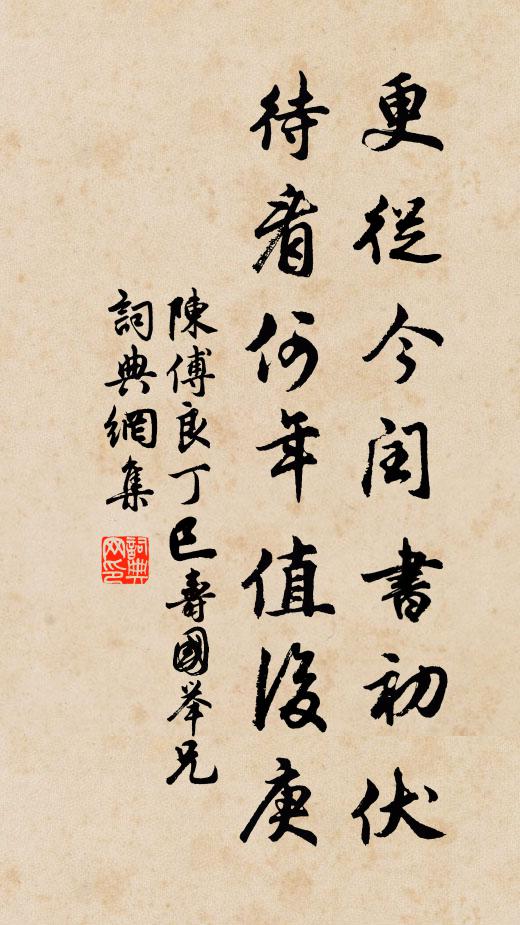 更從今閏書初伏
待看何年值後庚
陳傅良丁巳壽國举兄
詞典網集
詞典網印